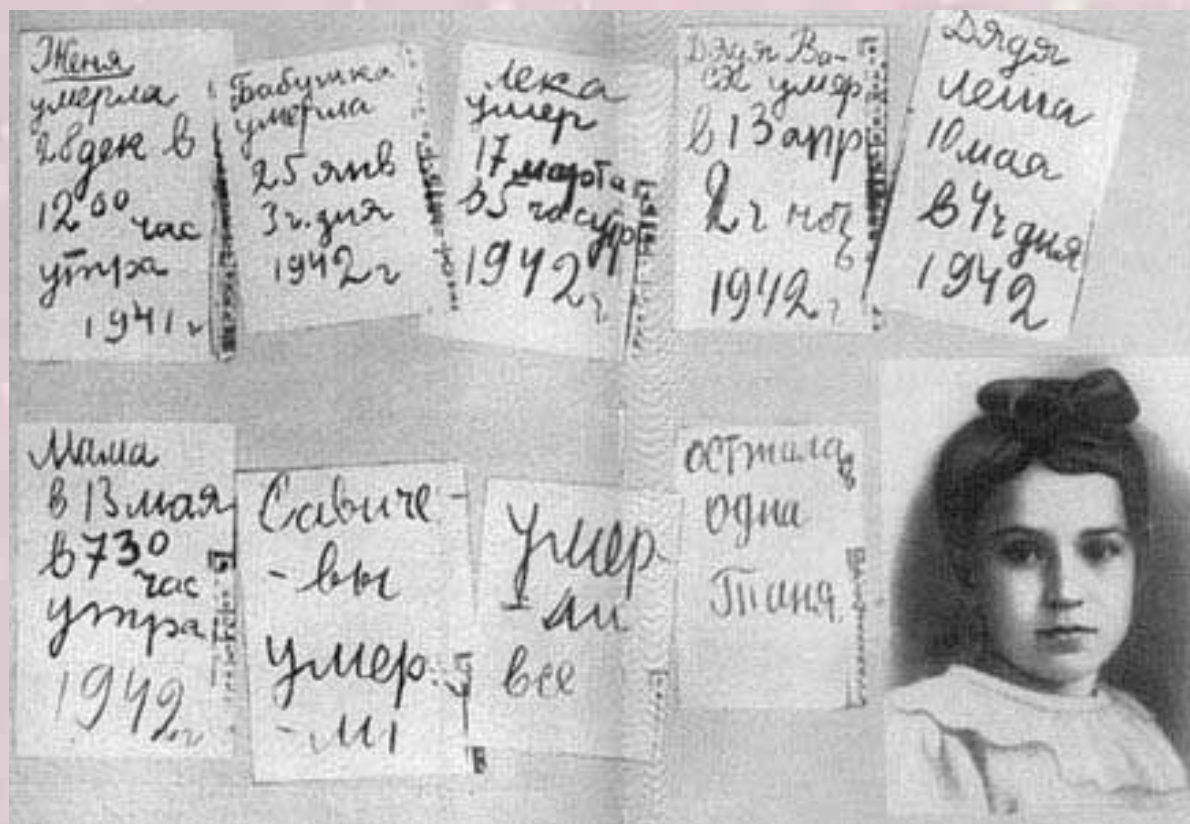 Женя
умерла
28 дек в
12 00 час
утра
1941 г
Бабушка
умерла
25 янв
3 ч. дня
1942 г
Лека
умер
17 марта
в 5 час утр
1942 г
Дядя Ва-
ся умер
в 13 апр
2 ч ноч
ь
1942 г
Дядя
Леша
10 мая
в 4 ч дня
1942
Мама
в 13 мая
в 7 30
час
утра
1942 г
Савиче-
-вы
умер-
-ли
Умер-
-ли
все
осталась
одна
Таня